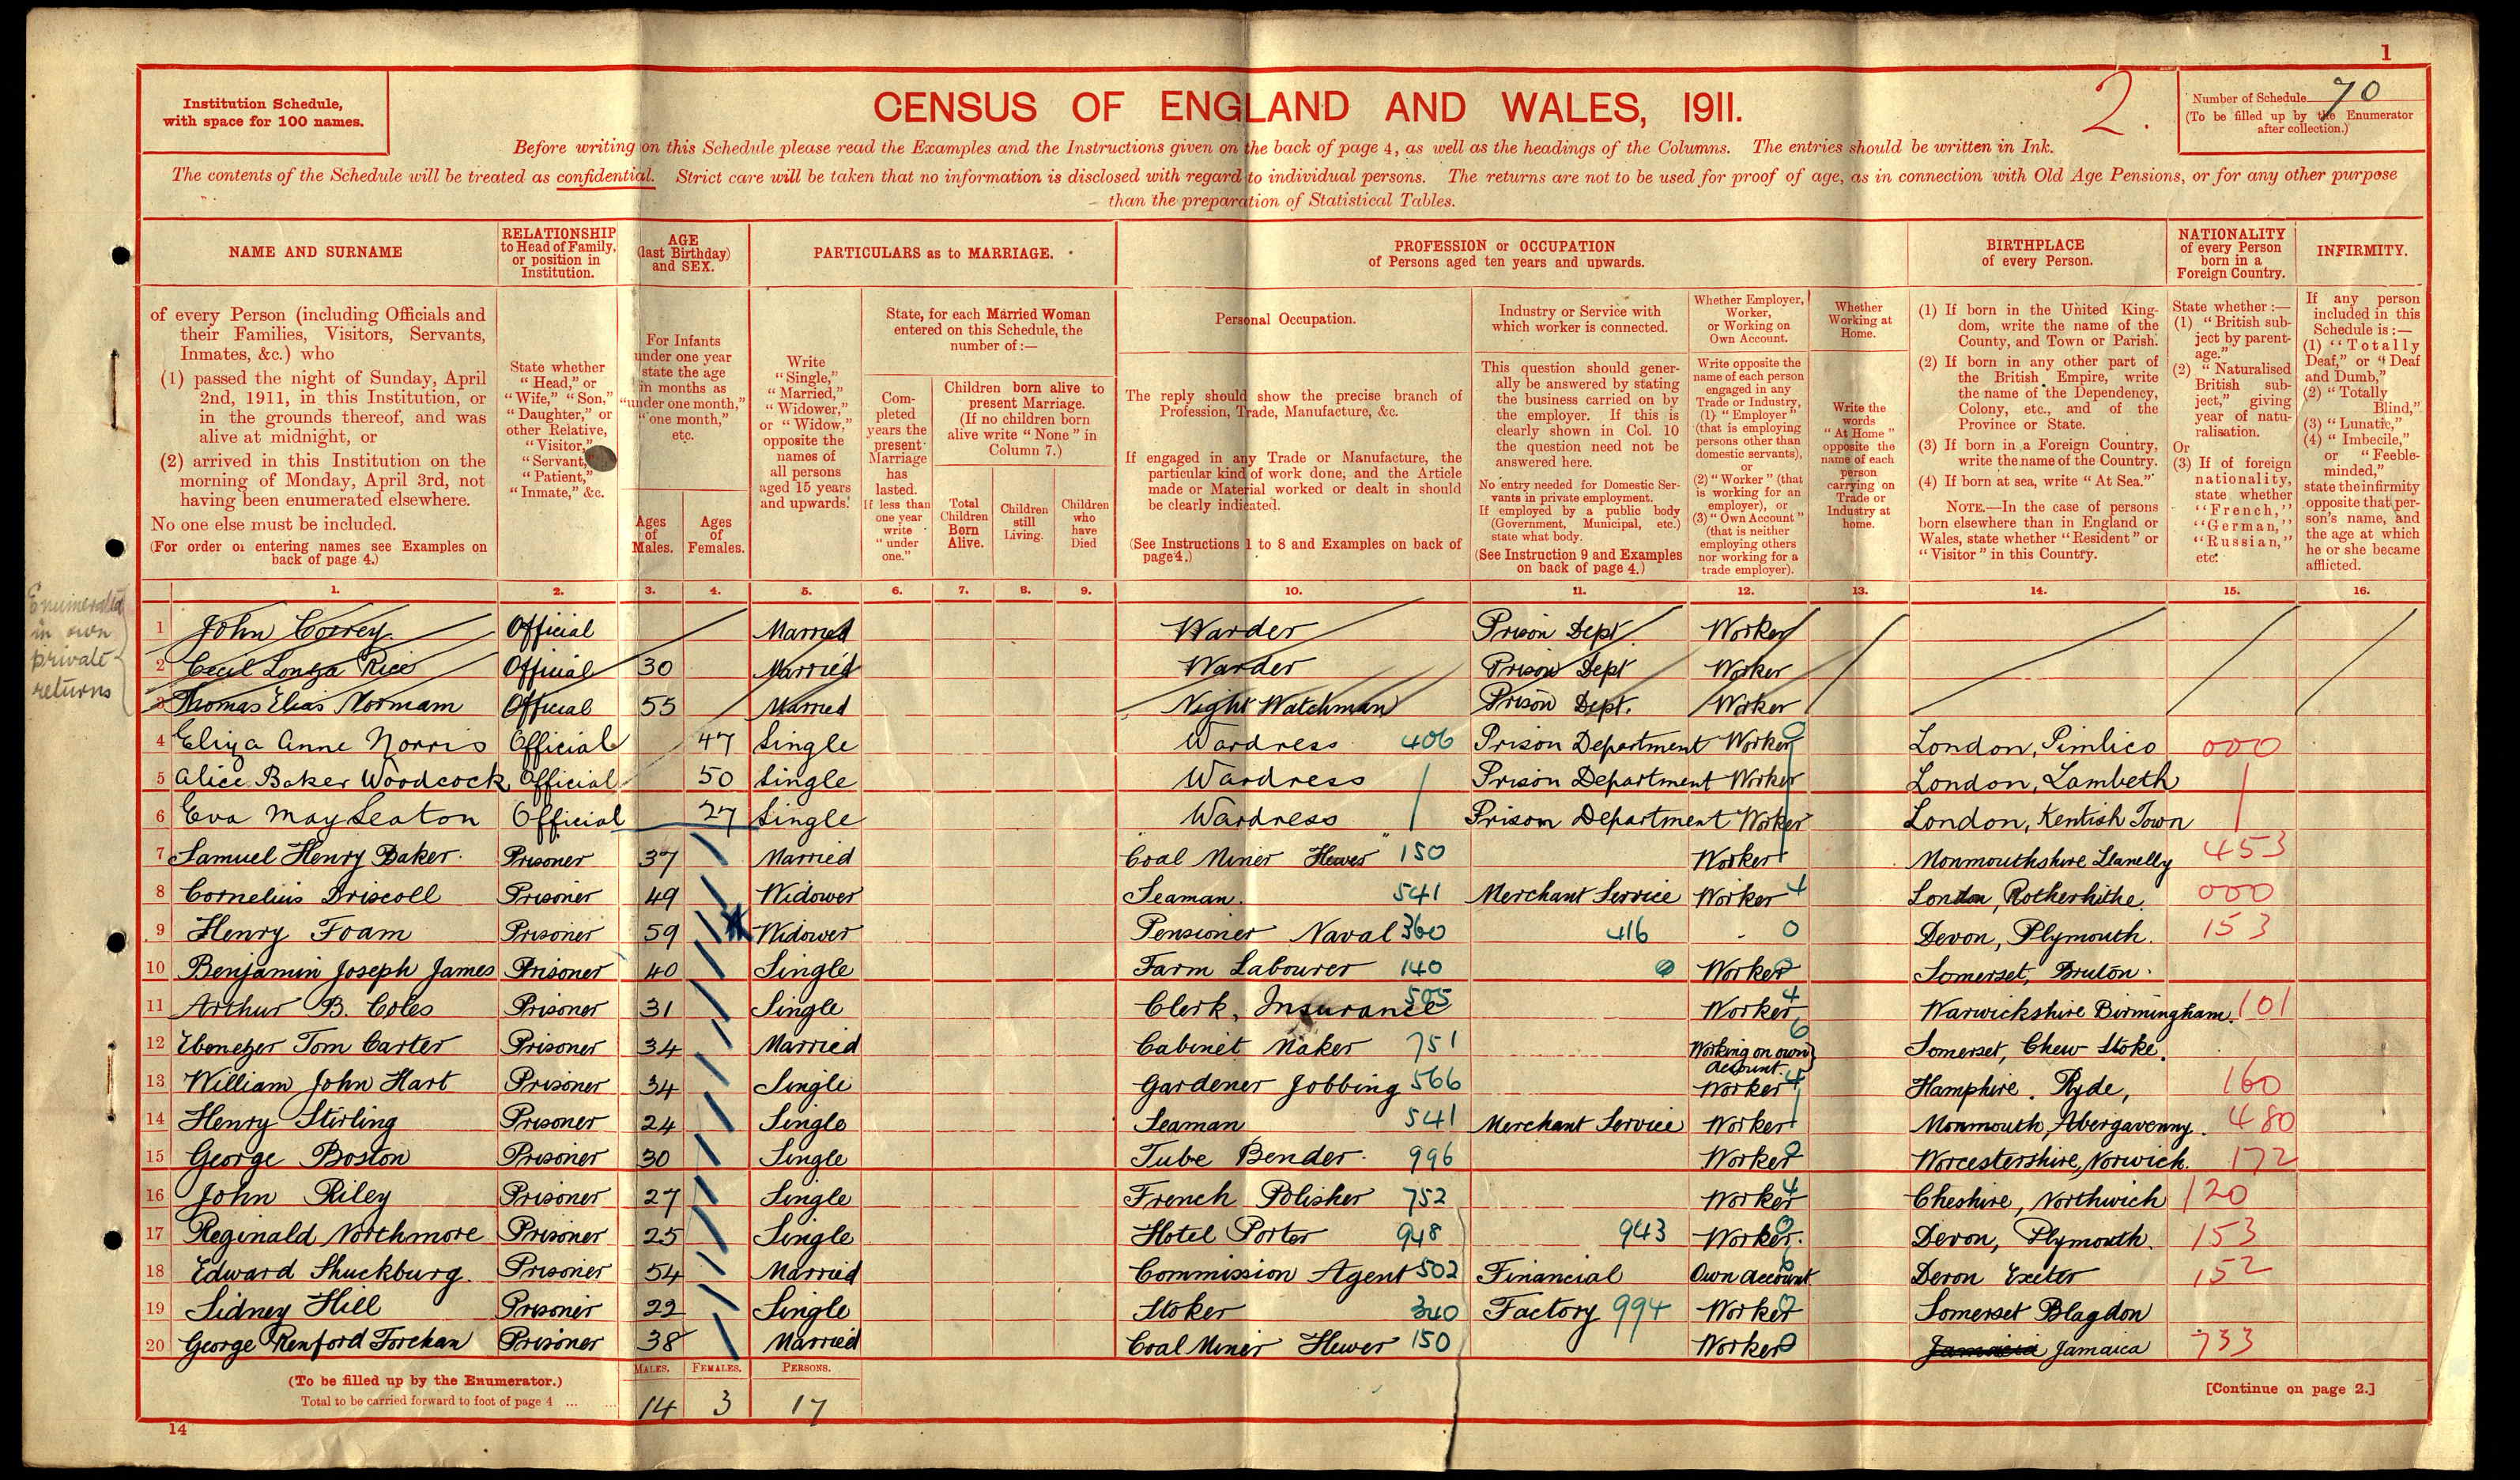 1
Institution Schedule,
with space for 100 names.
CENSUS OF ENGLAND AND WALES, 1911.
2.
Number of Schedule 70
(To be filled up by the Enumerator
after collection.)
Before writing on this Schedule please read the Examples and the Instructions given on the back of page 4, as well as the headings of the Columns. The entries should be written in Ink.
The contents of the Schedule will be treated as confidential. Strict care will be taken that no information is disclosed with regard to individual persons. The returns are not to be used for proof of age, as in connection with Old Age Pensions, or for any other purpose
than the preparation of Statistical Tables.
NAME AND SURNAME
of every Person (including Officials and
their Families, Visitors, Servants,
Inmates, &c.) who
(1) passed the night of Sunday, April
2nd, 1911, in this Institution, or
in the grounds thereof, and was
alive at midnight, or
(2) arrived in this Institution on the
morning of Monday, April 3rd, not
having been enumerated elsewhere.
No one else must be included.
(For order or entering names see Examples on
back of page 4.)
RELATIONSHIP
to Head of Family,
or position in
Institution.
State whether
"Head," or
"Wife," "Son,"
"Daughter," or
other Relative,
"Visitor,"
"Servant,"
"Patient,"
"Inmate," &c.
AGE
(last Birthday)
and SEX.
For Infants
under one year
state the age
in months as
"under one month,"
"one month,"
etc.
Ages
of
Males.
Ages
of
Females.
PARTICULARS as to MARRIAGE.
Write
"Single,"
"Married,"
"Widower,"
or "Widow,"
opposite the
names of
all persons
aged 15 years
and upwards.
State, for each Married Woman
entered on this Schedule, the
number of:—
Com-
pleted
years the
present
Marriage
has
lasted.
If less than
one year
write
"under
one."
Children born alive to
present Marriage.
(If no children born
alive write "None" in
Column 7.)
Total
Children
Born
Alive.
Children
still
Living.
Children
who
have
Died
PROFESSION or OCCUPATION
of Persons aged ten years and upwards.
Personal Occupation.
The reply should show the precise branch of
Profession, Trade, Manufacture, &c.
If engaged in any Trade or Manufacture, the
particular kind of work done, and the Article
made or Material worked or dealt in should
be clearly indicated.
(See Instructions 1 to 8 and Examples on back of
page 4.)
Industry or Service with
which worker is connected.
This question should gener-
ally be answered by stating
the business carried on by
the employer. If this is
clearly shown in Col. 10
the question need not be
answered here.
No entry needed for Domestic Ser-
vants in private employment.
If employed by a public body
(Government, Municipal, etc.)
state what body.
(See Instruction 9 and Examples
on back of page 4.)
Whether Employer,
Worker,
or Working on
Own Account.
Write opposite the
name of each person
engaged in any
Trade or Industry,
(1) "Employer"
(that is employing
persons other than
domestic servants),
or
(2) "Worker" (that
is working for an
employer), or
(3) "Own Account"
(that is neither
employing others
nor working for a
trade employer).
Whether
Working at
Home.
Write the
words
"At Home"
opposite the
name of each
person
carrying on
Trade or
Industry at
home.
BIRTHPLACE
of every Person.
(1) If born in the United King-
dom, write the name of the
County, and Town or Parish.
(2) If born in any other part of
the British Empire, write
the name of the Dependency,
Colony, etc., and of the
Province or State.
(3) If born in a Foreign Country,
write the name of the Country.
(4) If born at sea, write "At Sea."
NOTE.—In the case of persons
born elsewhere than in England or
Wales, state whether "Resident" or
"Visitor" in this Country.
NATIONALITY
of every Person
born in a
Foreign Country.
State whether:—
(1) "British sub-
ject by parent-
age."
(2) "Naturalised
British sub-
ject," giving
year of natu-
ralisation.
Or
(3) If of foreign
nationality,
state whether
"French,"
"German,"
"Russian,"
etc.
INFIRMITY.
If any person
included in this
Schedule is:—
(1) "Totally
Deaf," or "Deaf
and Dumb,"
(2) "Totally
Blind,"
(3) "Lunatic,"
(4) "Imbecile,"
or "Feeble-
minded,"
state the infirmity
opposite that per-
son's name, and
the age at which
he or she became
afflicted.
1. 2. 3. 4. 5. 6. 7. 8. 9. 10. 11. 12. 13. 14. 15. 16.
Enumerated
in own
private
returns
1 John Correy Official Married Warder Prison Dept Worker
2 Cecil Rice Official 30 Married Warder Prison Dept Worker
3 Thomas Elias Normam Official 55 Married Night Watchman Prison Dept. Worker
4 Eliza Anne Norris Official 47 Single Wardress 406 Prison Department Worker 0 London, Pimlico 000
5 Alice Baker Woodcock Official 50 Single Wardress Prison Department Worker London, Lambeth
6 Eva May Seaton Official 27 Single Wardress Prison Department Worker London, Kentish Town
7 Samuel Henry Baker Prisoner 37 Married Coal Miner Hewer 150 Worker Monmouthshire Llanelly 453
8 Cornelius Driscoll Prisoner 49 Widower Seaman 541 Merchant Service Worker 4 London, Rotherhithe 000
9 Henry Foam Prisoner 59 Widower Pensioner Naval 360 416 - 0 Devon, Plymouth. 153
10 Benjamin Joseph James Prisoner 40 Single Farm Labourer 140 0 Worker Somerset, Bruton
11 Arthur B. Coles Prisoner 31 Single Clerk, Insurance 505 Worker 4 Warwickshire Birmingham. 101
12 Ebenezer Tom Carter Prisoner 34 Married Cabinet Maker 751 Working on own account 6 Somerset, Chew Stoke.
13 William John Hart Prisoner 34 Single Gardener Jobbing 566 Worker 4 Hamphire. Ryde, 160
14 Henry Stirling Prisoner 24 Single Seaman 541 Merchant Service Worker Monmouth, Abergavenny. 480
15 George Boston Prisoner 30 Single Tube Bender 996 Worker 0 Worcestershire, Norwich. 172
16 John Riley Prisoner 27 Single French Polisher 752 Worker 4 Cheshire, Northwich 120
17 Reginald Northmore Prisoner 25 Single Hotel Porter 948 943 Worker. 0 Devon, Plymouth. 153
18 Edward Shuckburg. Prisoner 54 Married Commission Agent 502 Financial Own account 6 Devon Exeter 152
19 Sidney Hill Prisoner 22 Single Stoker 340 Factory 994 Worker 0 Somerset Blagdon
20 George Renford Forehan Prisoner 38 Married Coal Miner Hewer 150 Worker 0 Jamaica 733
MALES. FEMALES. PERSONS.
(To be filled up by the Enumerator.)
Total to be carried forward to foot of page 4 ... ...
14 3 17
[Continue on page 2.]
14